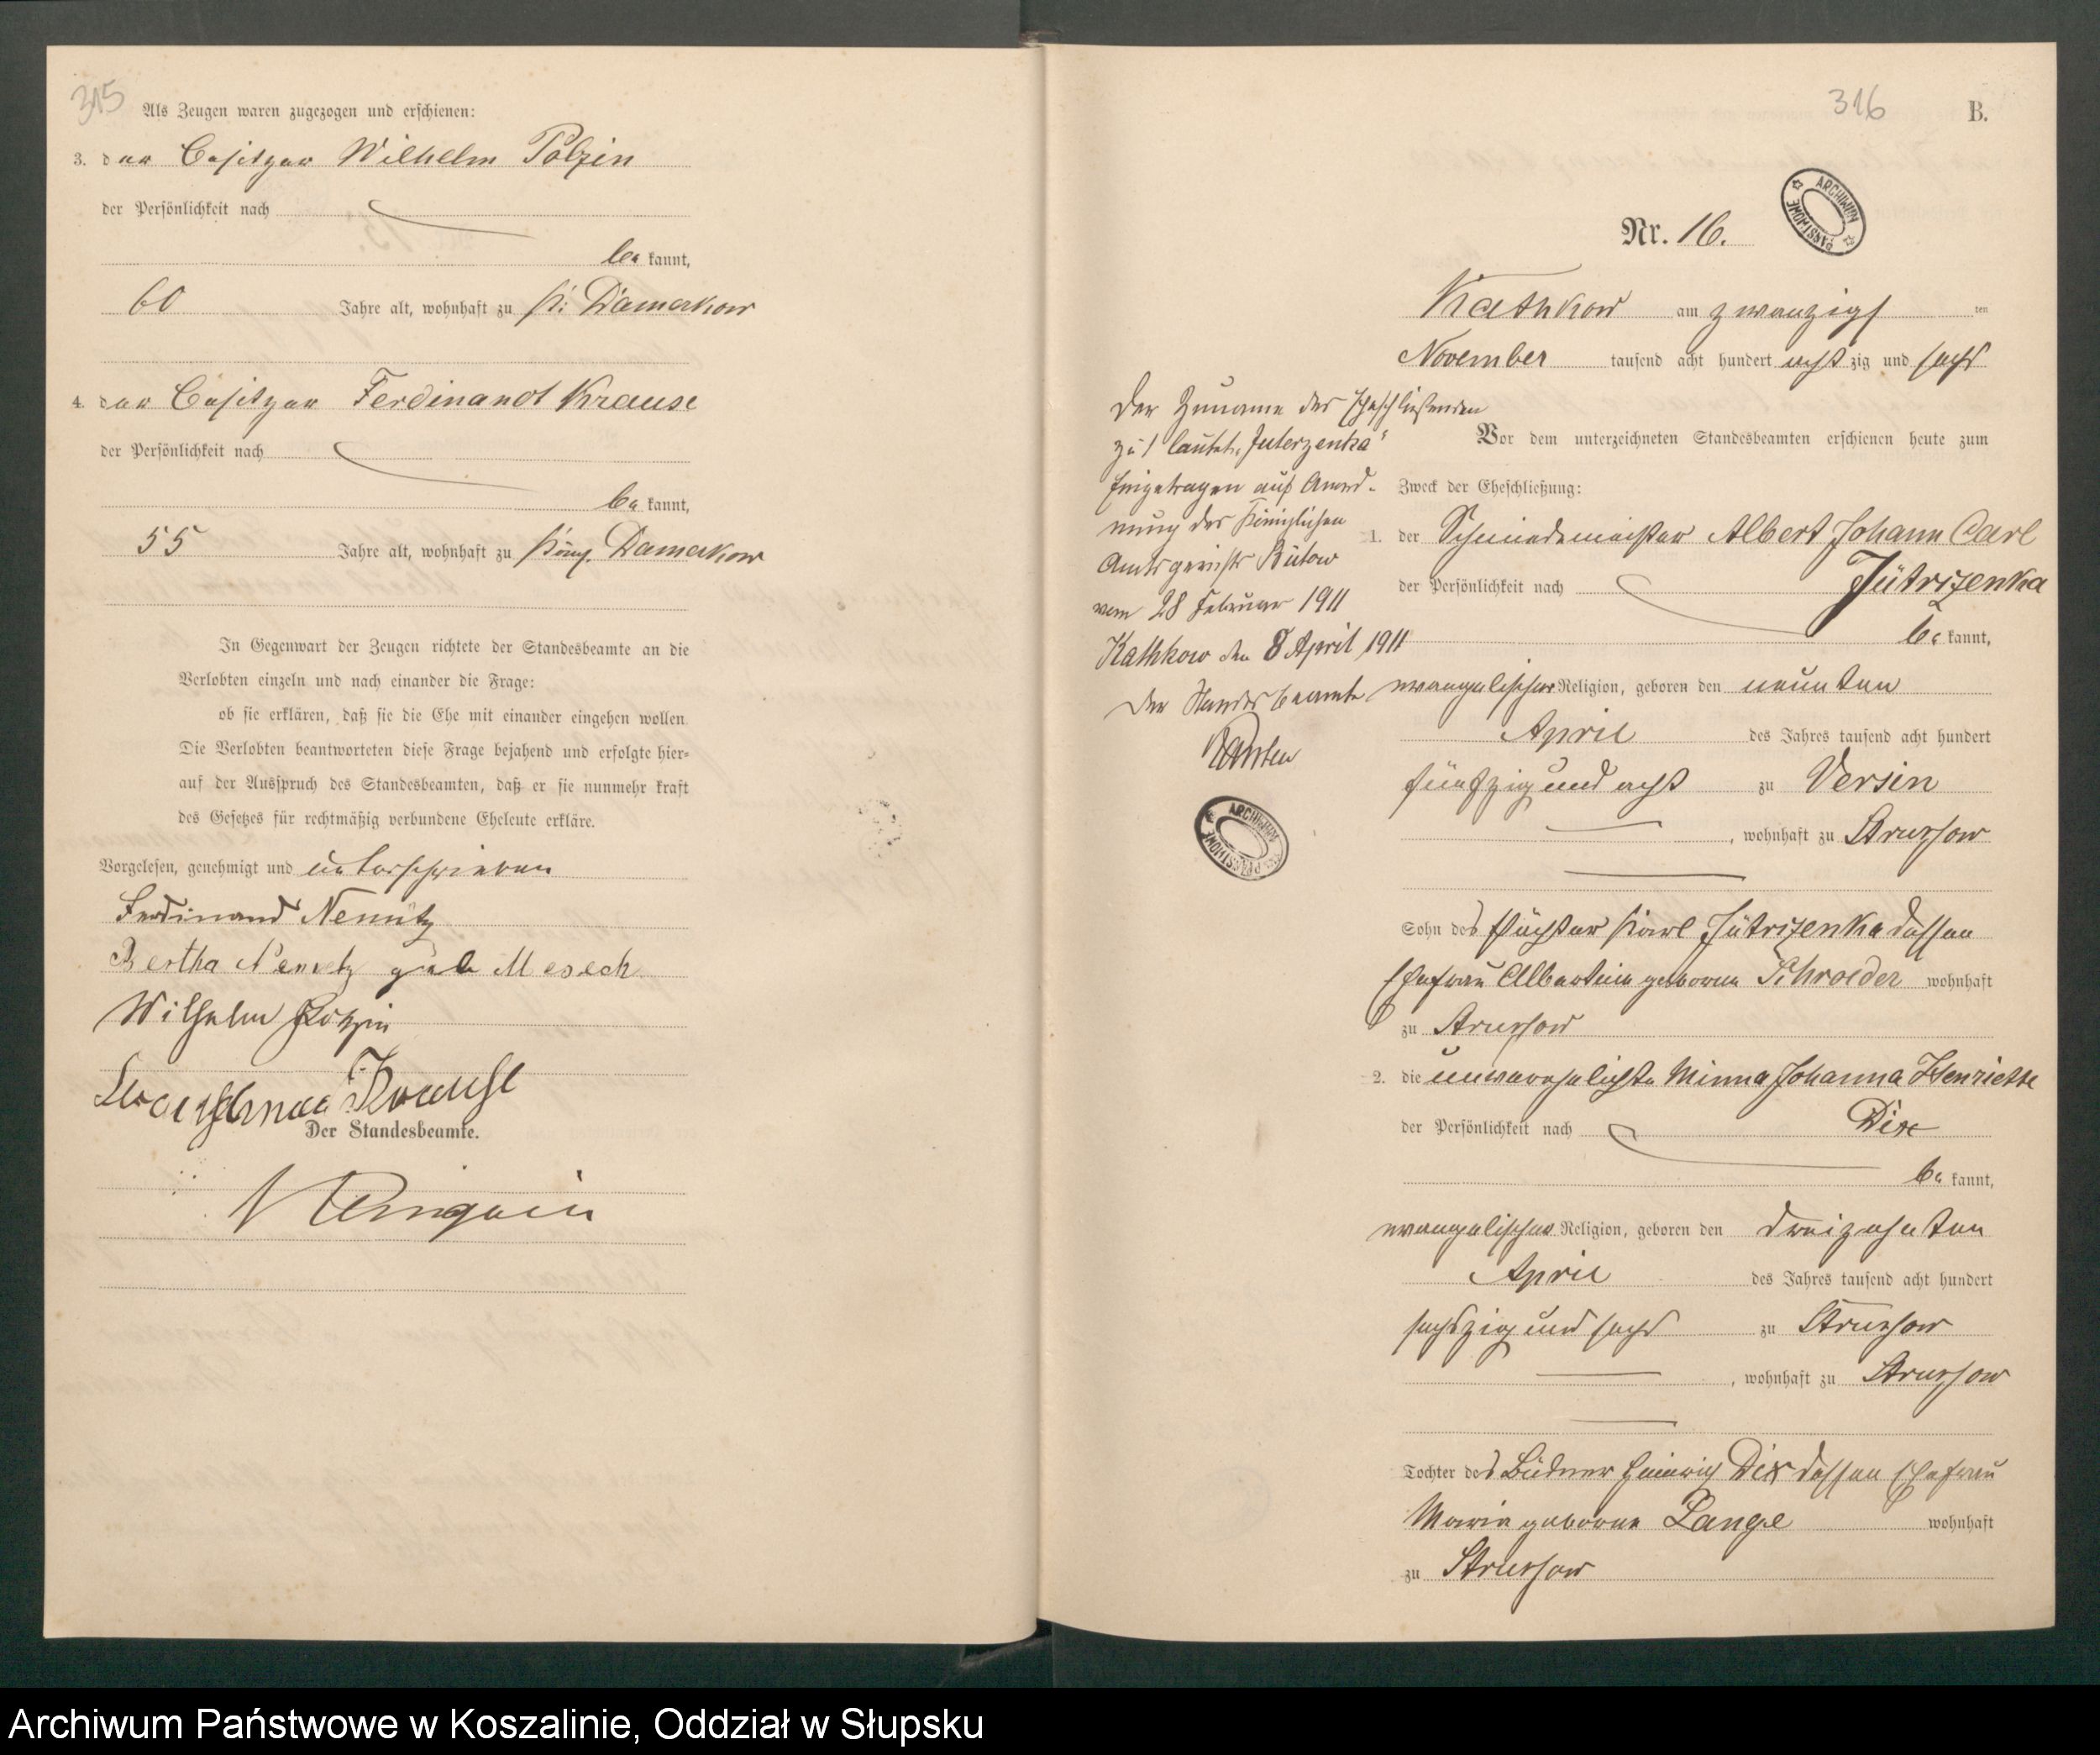 315
Als Zeugen waren zugezogen und erschienen:
3. der Besitzer Wilhelm Polzin
der Persönlichkeit nach
be kannt,
60 Jahre alt, wohnhaft zu K: Damerkow
4. der Besitzer Ferdinand Krause
der Persönlichkeit nach
be kannt,
55 Jahre alt, wohnhaft zu König. Damerkow
In Gegenwart der Zeugen richtete der Standesbeamte an die
Verlobten einzeln und nach einander die Frage:
ob sie erklären, daß sie die Ehe mit einander eingehen wollen.
Die Verlobten beantworteten diese Frage bejahend und erfolgte hier-
auf der Ausspruch des Standesbeamten, daß er sie nunmehr kraft
des Gesetzes für rechtmäßig verbundene Eheleute erkläre.
Vorgelesen, genehmigt und unterschrieben
Ferdinand Nemitz
Bertha Nemitz geb Mesech
Wilhelm Polzin
Krause
Der Standesbeamte.
316
B.
ARCHIWUM PAŃSTWOWE
Nr. 16.
Kathkow am zwanzigs ten
November tausend acht hundert acht zig und sechs
Vor dem unterzeichneten Standesbeamten erschienen heute zum
Zweck der Eheschließung:
1. der Schmiedemeister Albert Johann Carl
der Persönlichkeit nach Jütrizenka
be kannt,
evangelischer Religion, geboren den neunten
April des Jahres tausend acht hundert
fünfzig und acht zu Versin
, wohnhaft zu Strussow
Sohn des Pächter Karl Jütrizenka dessen
Ehefrau Albertine geborne Schroeder wohnhaft
zu Strussow
2. die unverehelichte Minna Johanna Henriette
der Persönlichkeit nach Dix
be kannt,
evangelischer Religion, geboren den dreizehnten
April des Jahres tausend acht hundert
sechszig und sechs zu Strussow
, wohnhaft zu Strussow
Tochter des Büdner Heinrich Dix dessen Ehefrau
Marie geborne Lange wohnhaft
zu Strussow
Der Zuname des Eheschließenden
zu 1 lautet „Juterzenka“
Eingetragen auf Anord-
nung des Königlichen
Amtsgerichts Bütow
vom 28 Februar 1911
Kathkow den 8 April 1911
Der Standesbeamte
ARCHIWUM PAŃSTWOWE
Archiwum Państwowe w Koszalinie, Oddział w Słupsku